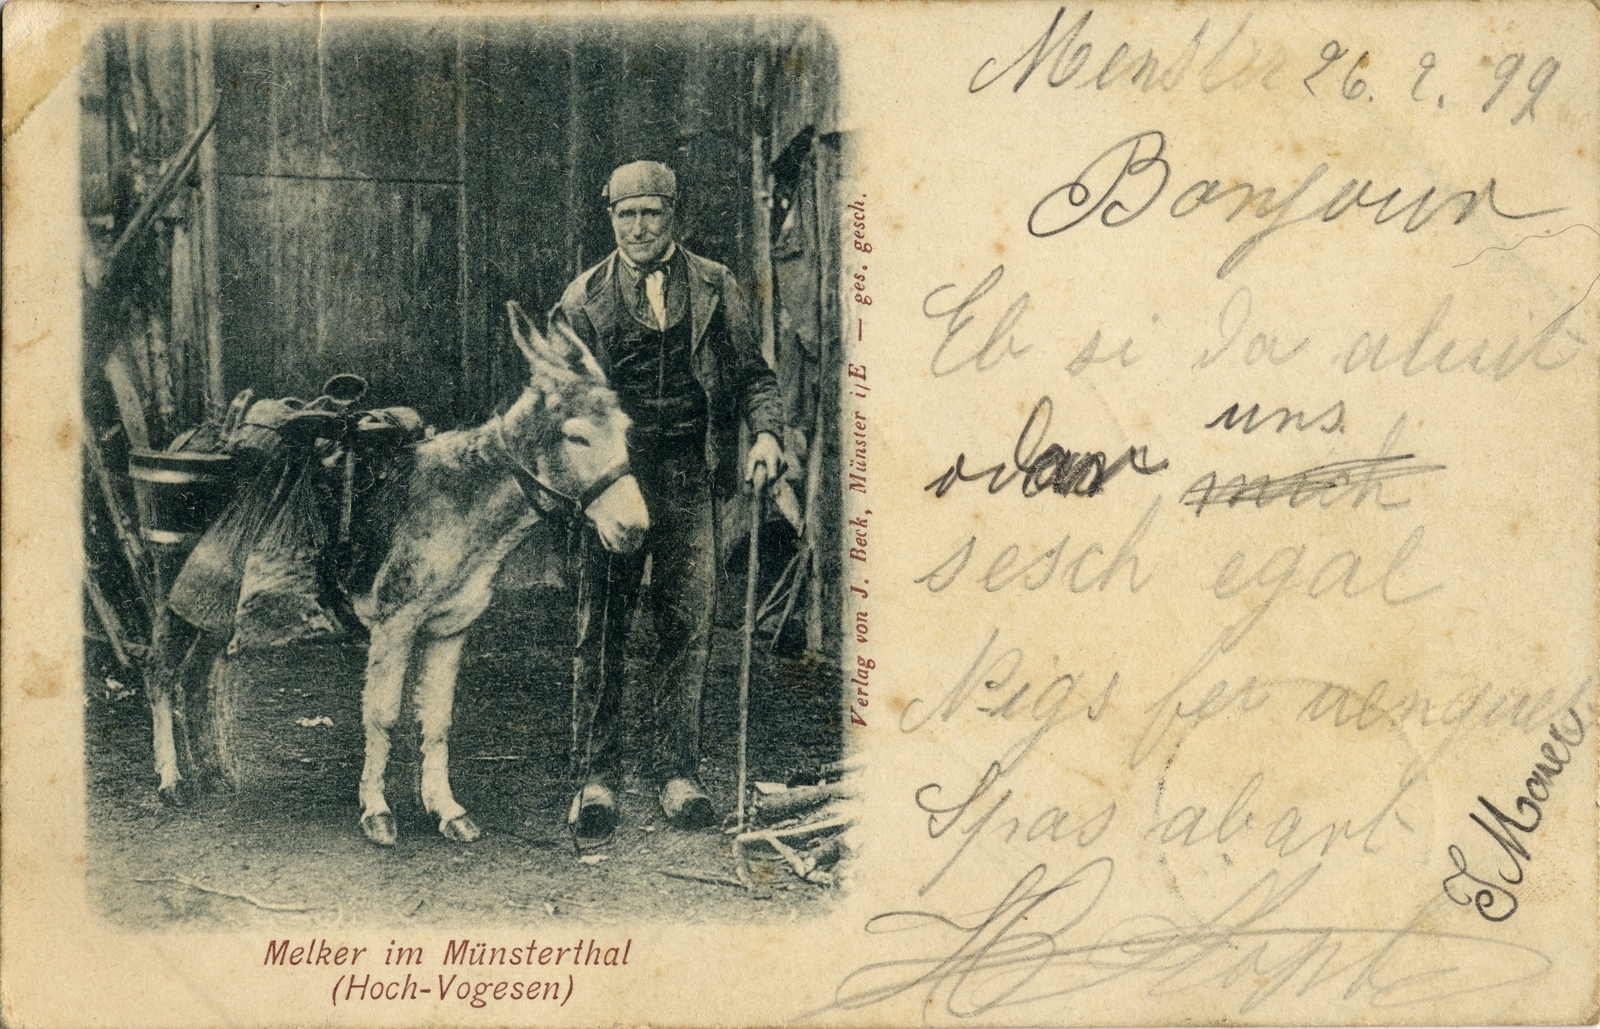 Melker im Münsterthal
(Hoch-Vogesen)
Verlag von J. Beck, Münster i/E — ges. gesch.
26. 2. 99
Bonjour
Eb si da
uns
odar mich
sesch egal
Nigs fer
Spas abart